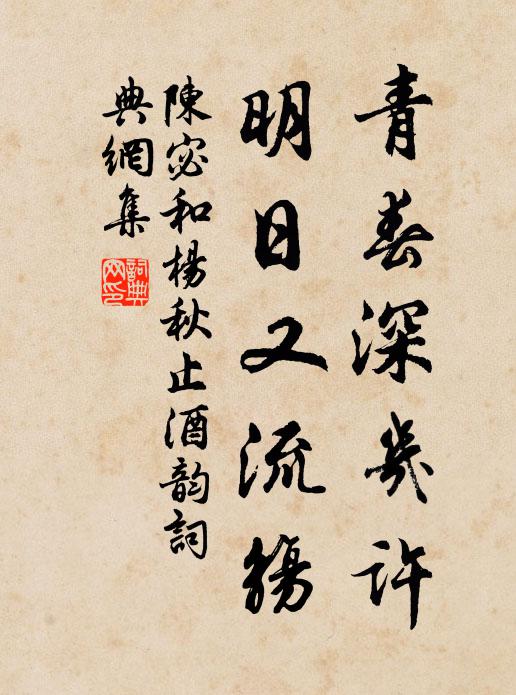 青春深幾許
明日又流觴
陳宓和楊秋止酒韵詞
典網集
詞典網印